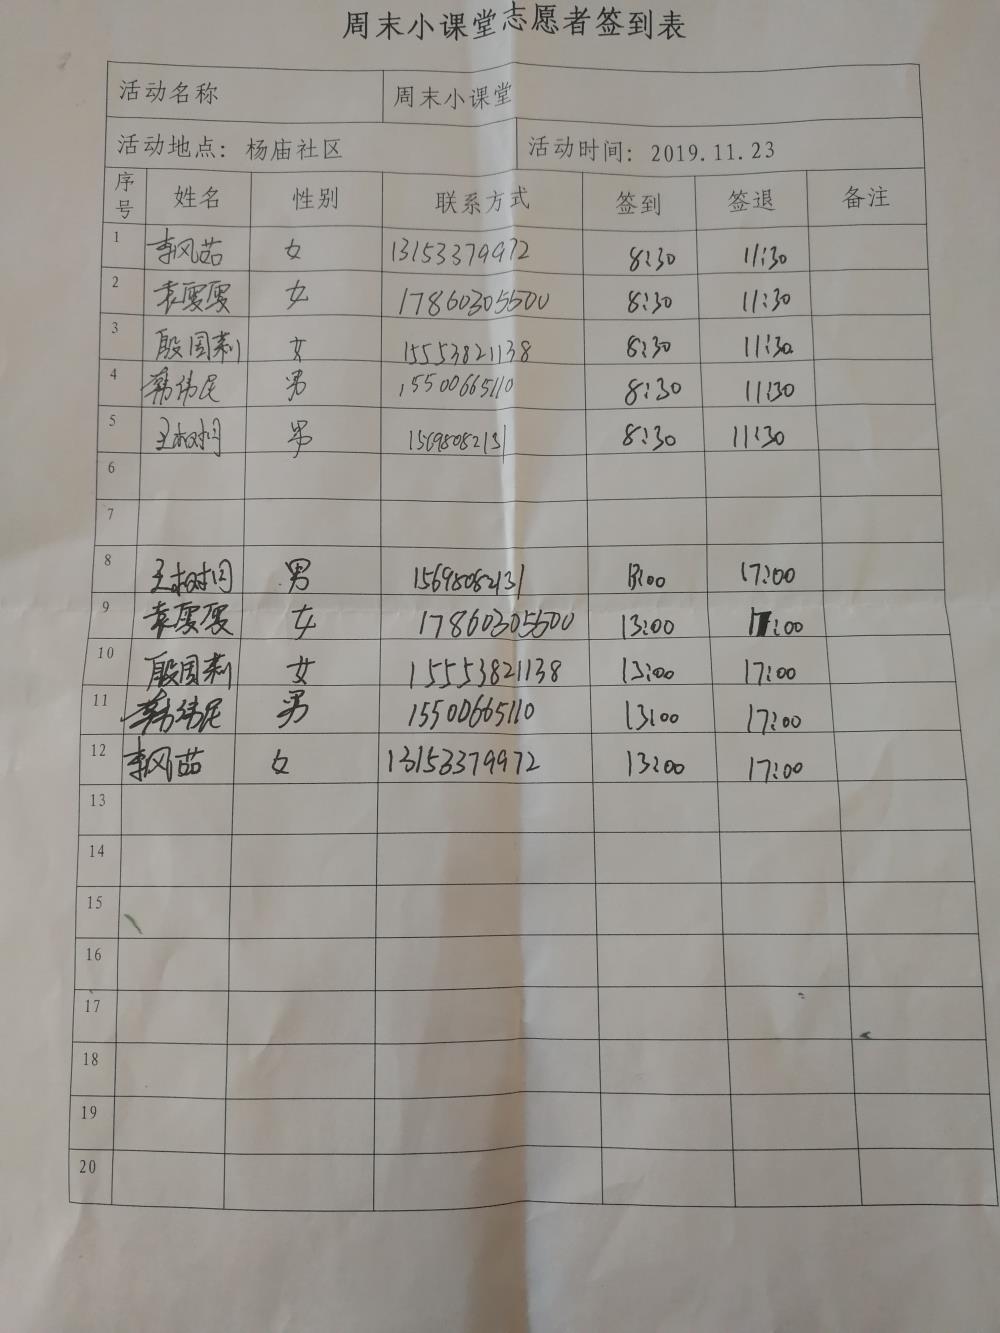 周末小课堂志愿者签到表
活动名称 周末小课堂
活动地点：杨庙社区 活动时间：2019.11.23
序号 姓名 性别 联系方式 签到 签退 备注
1 李风茹 女 13153379972 8:30 11:30
2 袁雯雯 女 17860305500 8:30 11:30
3 殷国莉 女 15553821138 8:30 11:30
4 韩纬民 男 15500665110 8:30 11:30
5 王树 男 15698082131 8:30 11:30
6
7
8 王树 男 15698082131 13:00 17:00
9 袁雯雯 女 17860305500 13:00 17:00
10 殷国莉 女 15553821138 13:00 17:00
11 韩纬民 男 15500665110 13:00 17:00
12 李风茹 女 13153379972 13:00 17:00
13
14
15
16
17
18
19
20